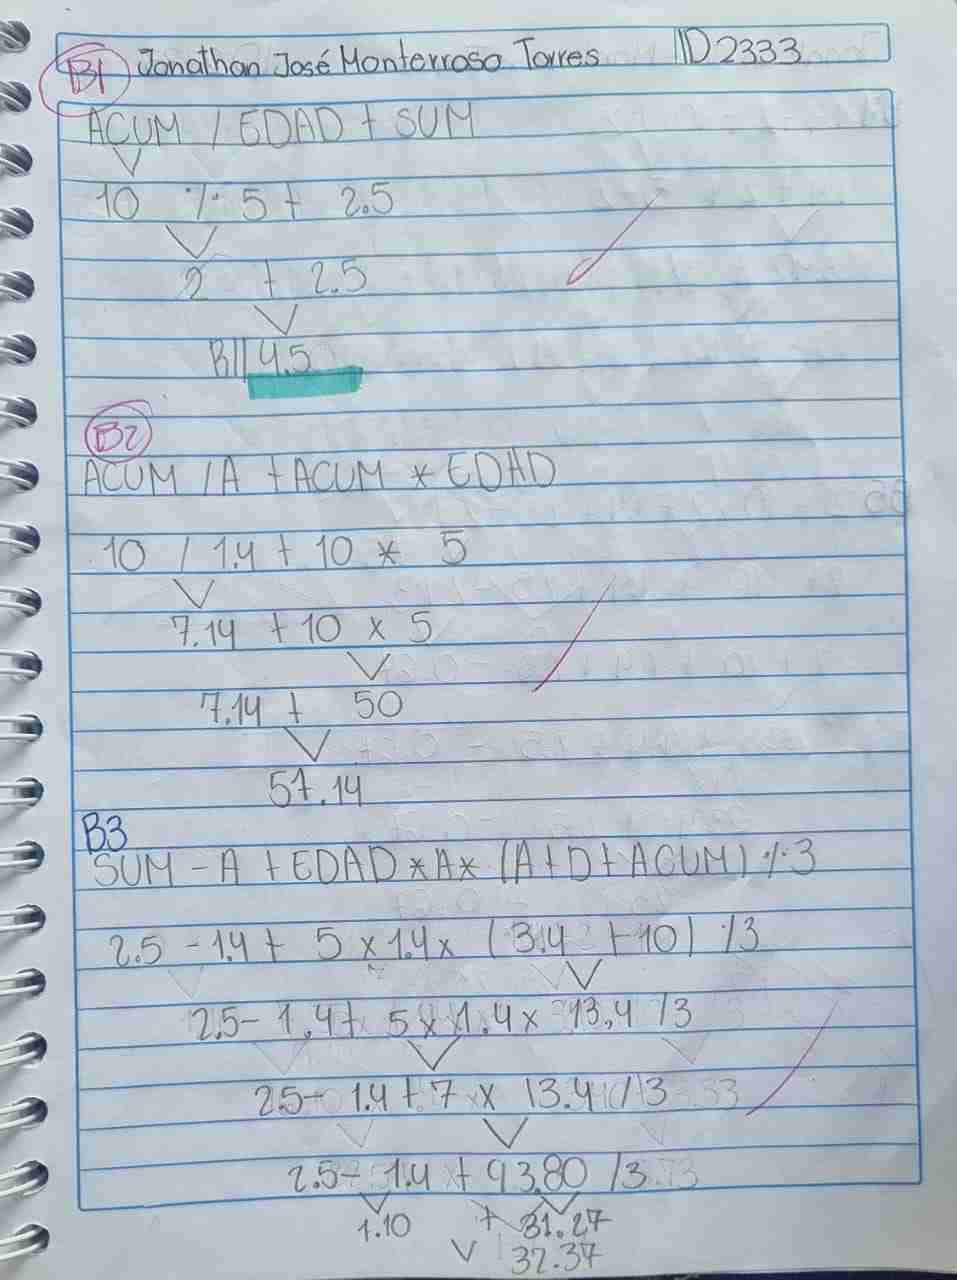 B1 Jonathan José Monterroso Torres ID 2333
ACUM / EDAD + SUM
10 ٪ 5 + 2.5
2 + 2.5
R// 4.5
B2
ACUM / A + ACUM * EDAD
10 / 1.4 + 10 * 5
7.14 + 10 x 5
7.14 + 50
57.14
B3
SUM - A + EDAD * A * (A + D + ACUM) ٪ 3
2.5 - 1.4 + 5 x 1.4 x (3.4 + 10) / 3
2.5 - 1.4 + 5 x 1.4 x 13.4 / 3
2.5 - 1.4 + 7 x 13.4 / 3
2.5 - 1.4 + 93.80 / 3
1.10 + 31.27
32.37